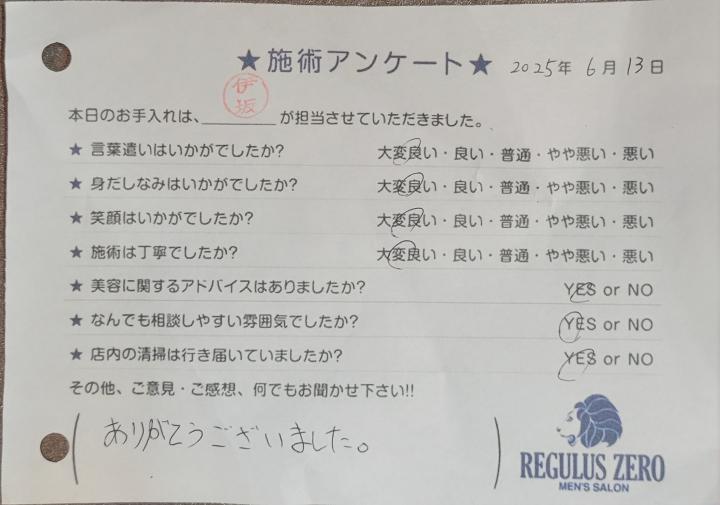 ★施術アンケート★ 2025年 6月 13日
伊坂
本日のお手入れは、________が担当させていただきました。
★ 言葉遣いはいかがでしたか? 大変良い・良い・普通・やや悪い・悪い
★ 身だしなみはいかがでしたか? 大変良い・良い・普通・やや悪い・悪い
★ 笑顔はいかがでしたか? 大変良い・良い・普通・やや悪い・悪い
★ 施術は丁寧でしたか? 大変良い・良い・普通・やや悪い・悪い
★ 美容に関するアドバイスはありましたか? YES or NO
★ なんでも相談しやすい雰囲気でしたか? YES or NO
★ 店内の清掃は行き届いていましたか? YES or NO
その他、ご意見・ご感想、何でもお聞かせ下さい!!
ありがとうございました。
REGULUS ZERO
MEN'S SALON